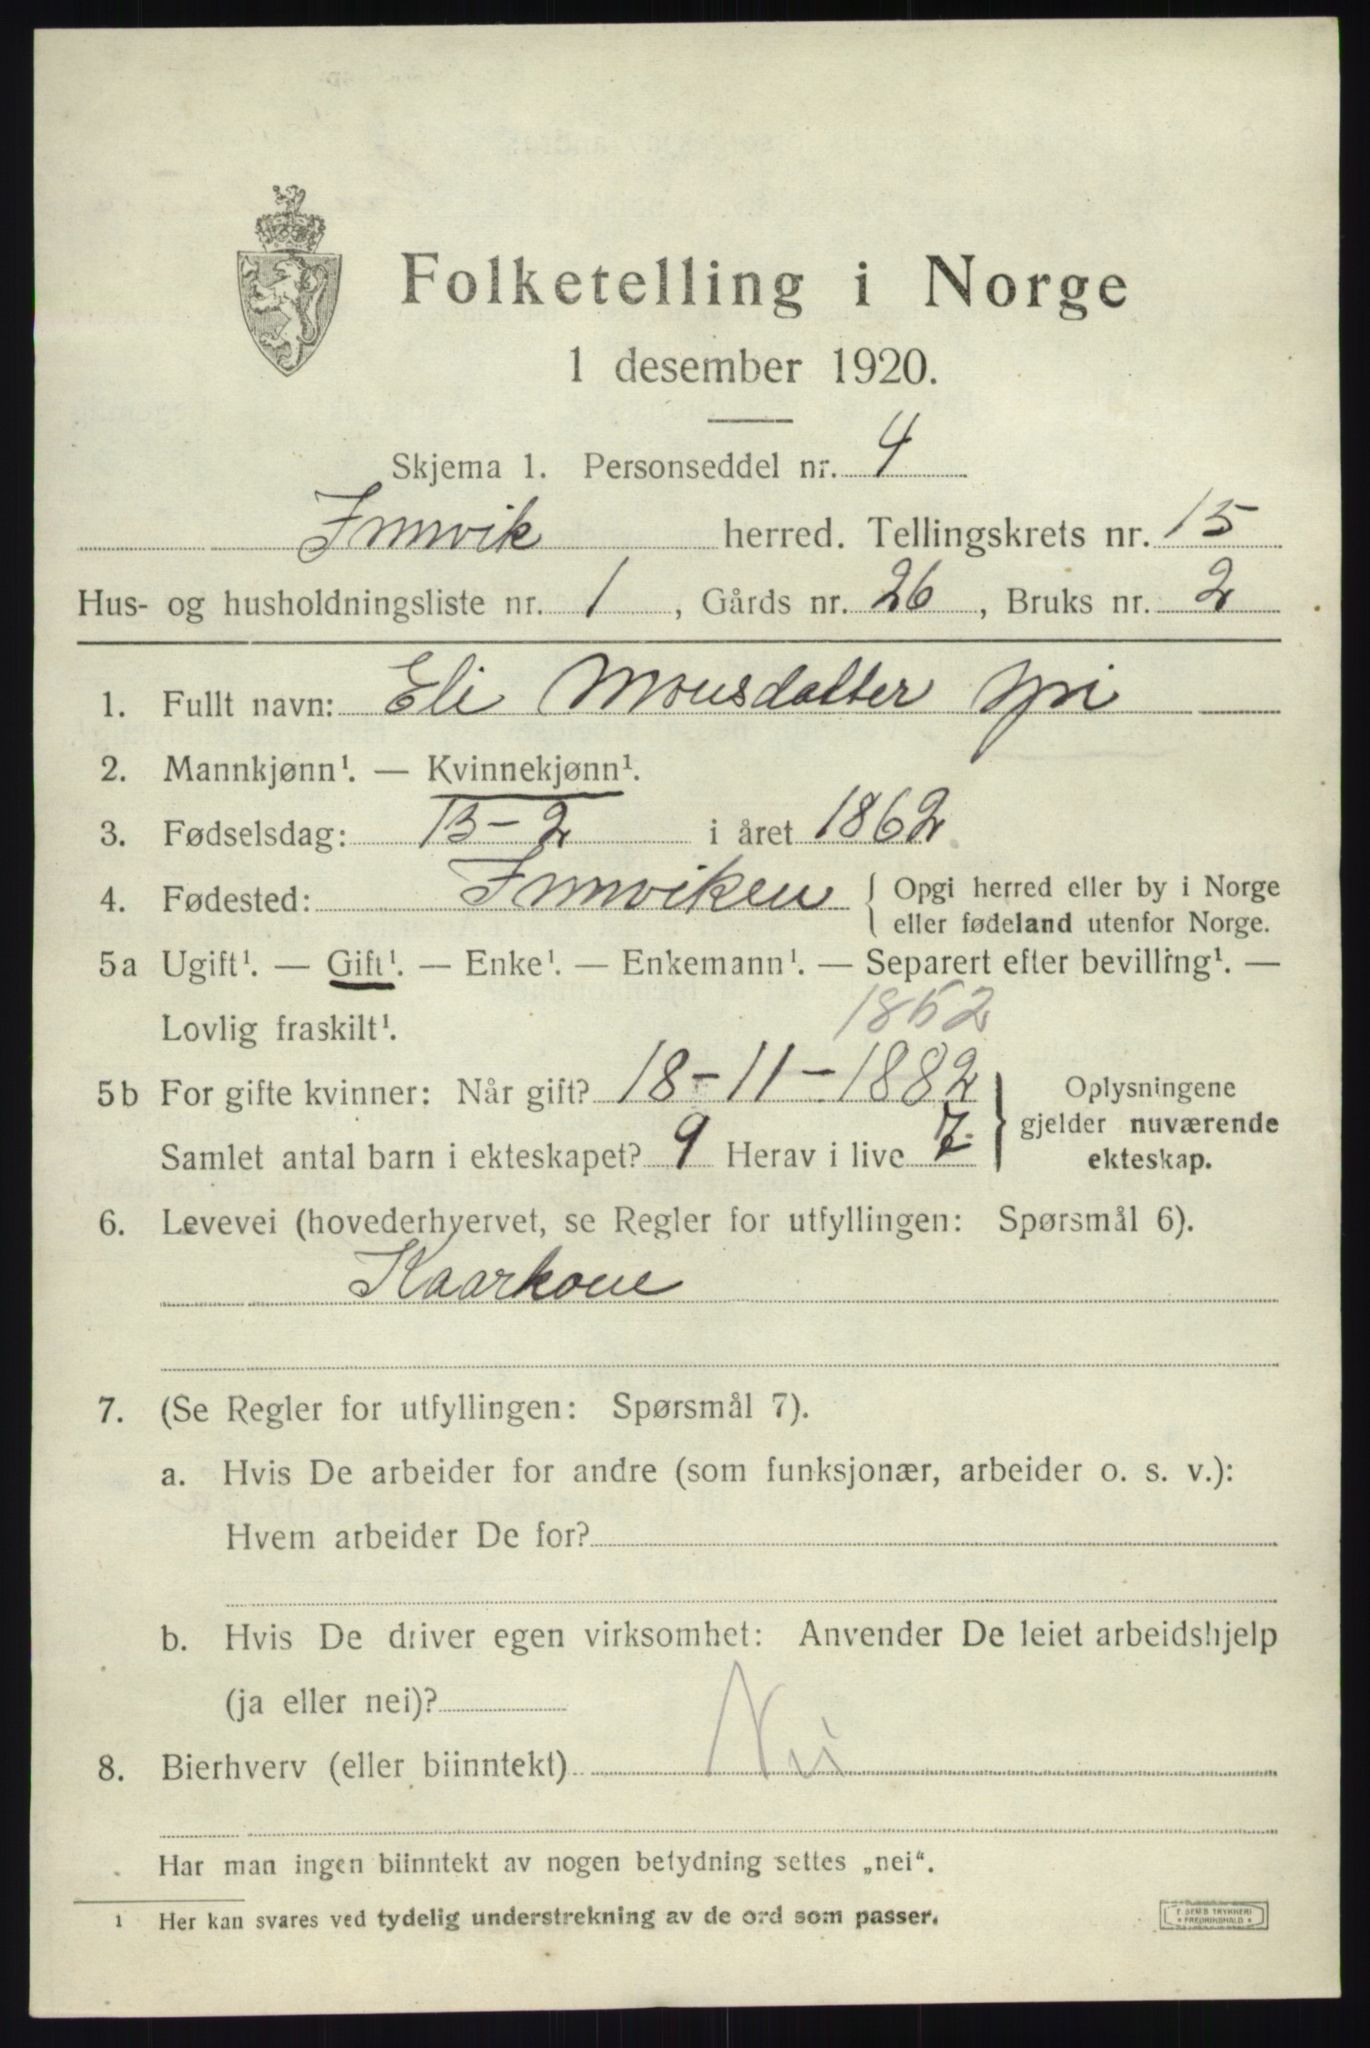 Folketelling i Norge
1 desember 1920.
Skjema 1. Personseddel nr. 4
Innvik herred. Tellingskrets nr. 15
Hus- og husholdningsliste nr. 1, Gårds nr. 26, Bruks nr. 2
1. Fullt navn: Eli Monsdatter Ypri
2. Mannkjønn¹. — Kvinnekjønn¹.
3. Fødselsdag: 13-2 i året 1862
4. Fødested: Innviken { Opgi herred eller by i Norge
eller fødeland utenfor Norge.
5a Ugift¹. — Gift¹. — Enke¹. — Enkemann¹. — Separert efter bevilling¹. —
Lovlig fraskilt¹. 1862
5b For gifte kvinner: Når gift? 18-11-1882
Samlet antal barn i ekteskapet? 9 Herav i live 7
} Oplysningene
gjelder nuværende
ekteskap.
6. Levevei (hovederhvervet, se Regler for utfyllingen: Spørsmål 6).
Kaarkone
7. (Se Regler for utfyllingen: Spørsmål 7).
a. Hvis De arbeider for andre (som funksjonær, arbeider o. s. v.):
Hvem arbeider De for?
b. Hvis De driver egen virksomhet: Anvender De leiet arbeidshjelp
(ja eller nei)?
8. Bierhverv (eller biinntekt) Nei
Har man ingen biinntekt av nogen betydning settes „nei“.
¹ Her kan svares ved tydelig understrekning av de ord som passer.
E. SEMS TRYKKERI
* FREDRIKSHALD *